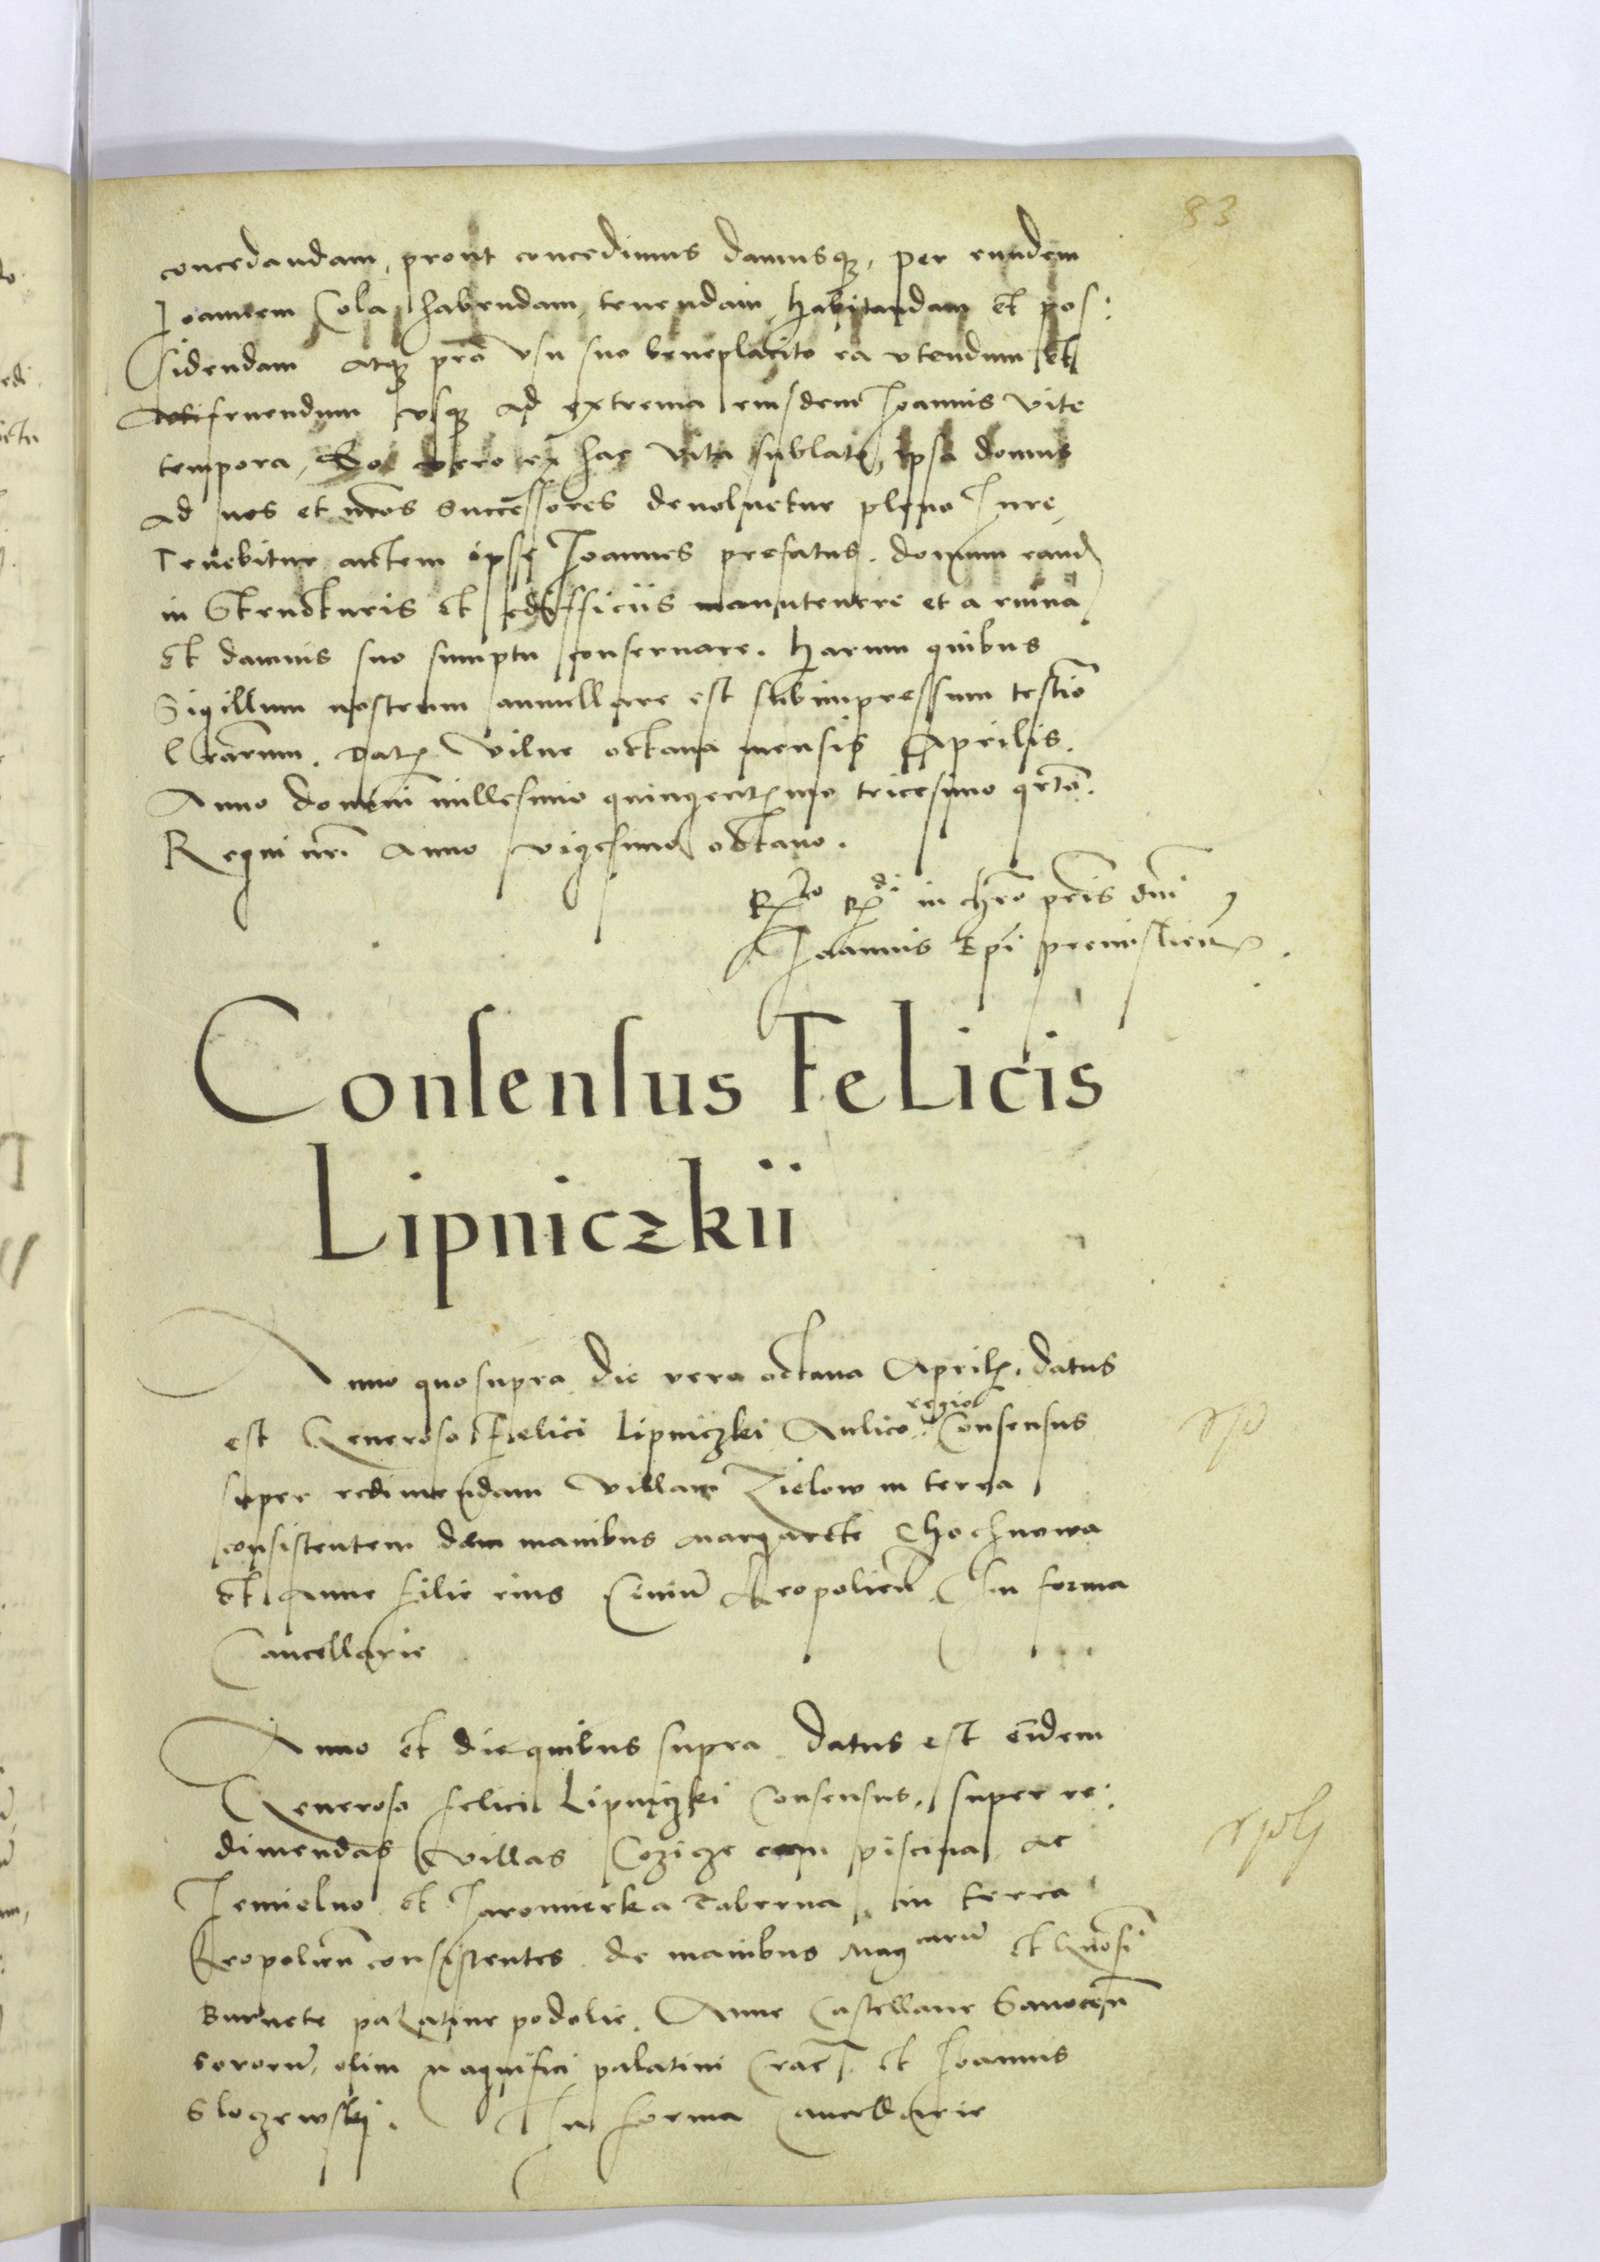 83
concedandam, prout concedimus damusq3, per eundem
Joannem Cola habendam, tenendam, habitandam et pos:
sidendam atq3 pro usu suo beneplacito ea utendum et
fruendum usq3 ad extrema eiusdem Joannis vite
tempora, Eo vero ex hac vita sublato, ipsa domus
ad nos et nr̃os Successores devoluetur pleno Jure,
Tenebitur autem ipse Joannes prefatus. domum eand
in Structuris et edifficiis manutenere et a ruina
et damnis suo sumptu conservare. Harum quibus
Sigillum nostrum annullare est subimpressum testio
l̃rarum. Dat. Vilne octava mensis Aprilis.
Anno domini millesimo quingentesimo tricesimo qrto.
Regni nr̃i Anno vigesimo octavo.
Rtio Rdi in chro pr̃is dñi
Joannis Epi premislien
Consensus Felicis
Lipniczkii
Anno quo supra die vero octava Aprilis. datus
est Generoso Felici Lipniczki Aulico regio Consensus
super redimendam villam Zielow in terra
consistentem de manibus Margarete Chochnowa
et Anne filie eius Civiũ Leopolien. In forma
Cancellarie
Anno et die quibus supra datus est eidem
Generoso felici Lipniczki Consensus, super re:
dimendas villas Cozicze cum piscina ac
Jemielno et Jaromierka Taberna in terra
Leopolien consistentes de manibus Mag carũ et Gnosi
Burnete palatine podolie. Anne Castellane Sanocen
sororũ, olim magnifici palatini Crac. et Joannis
Sloczewski. In forma Cancellarie